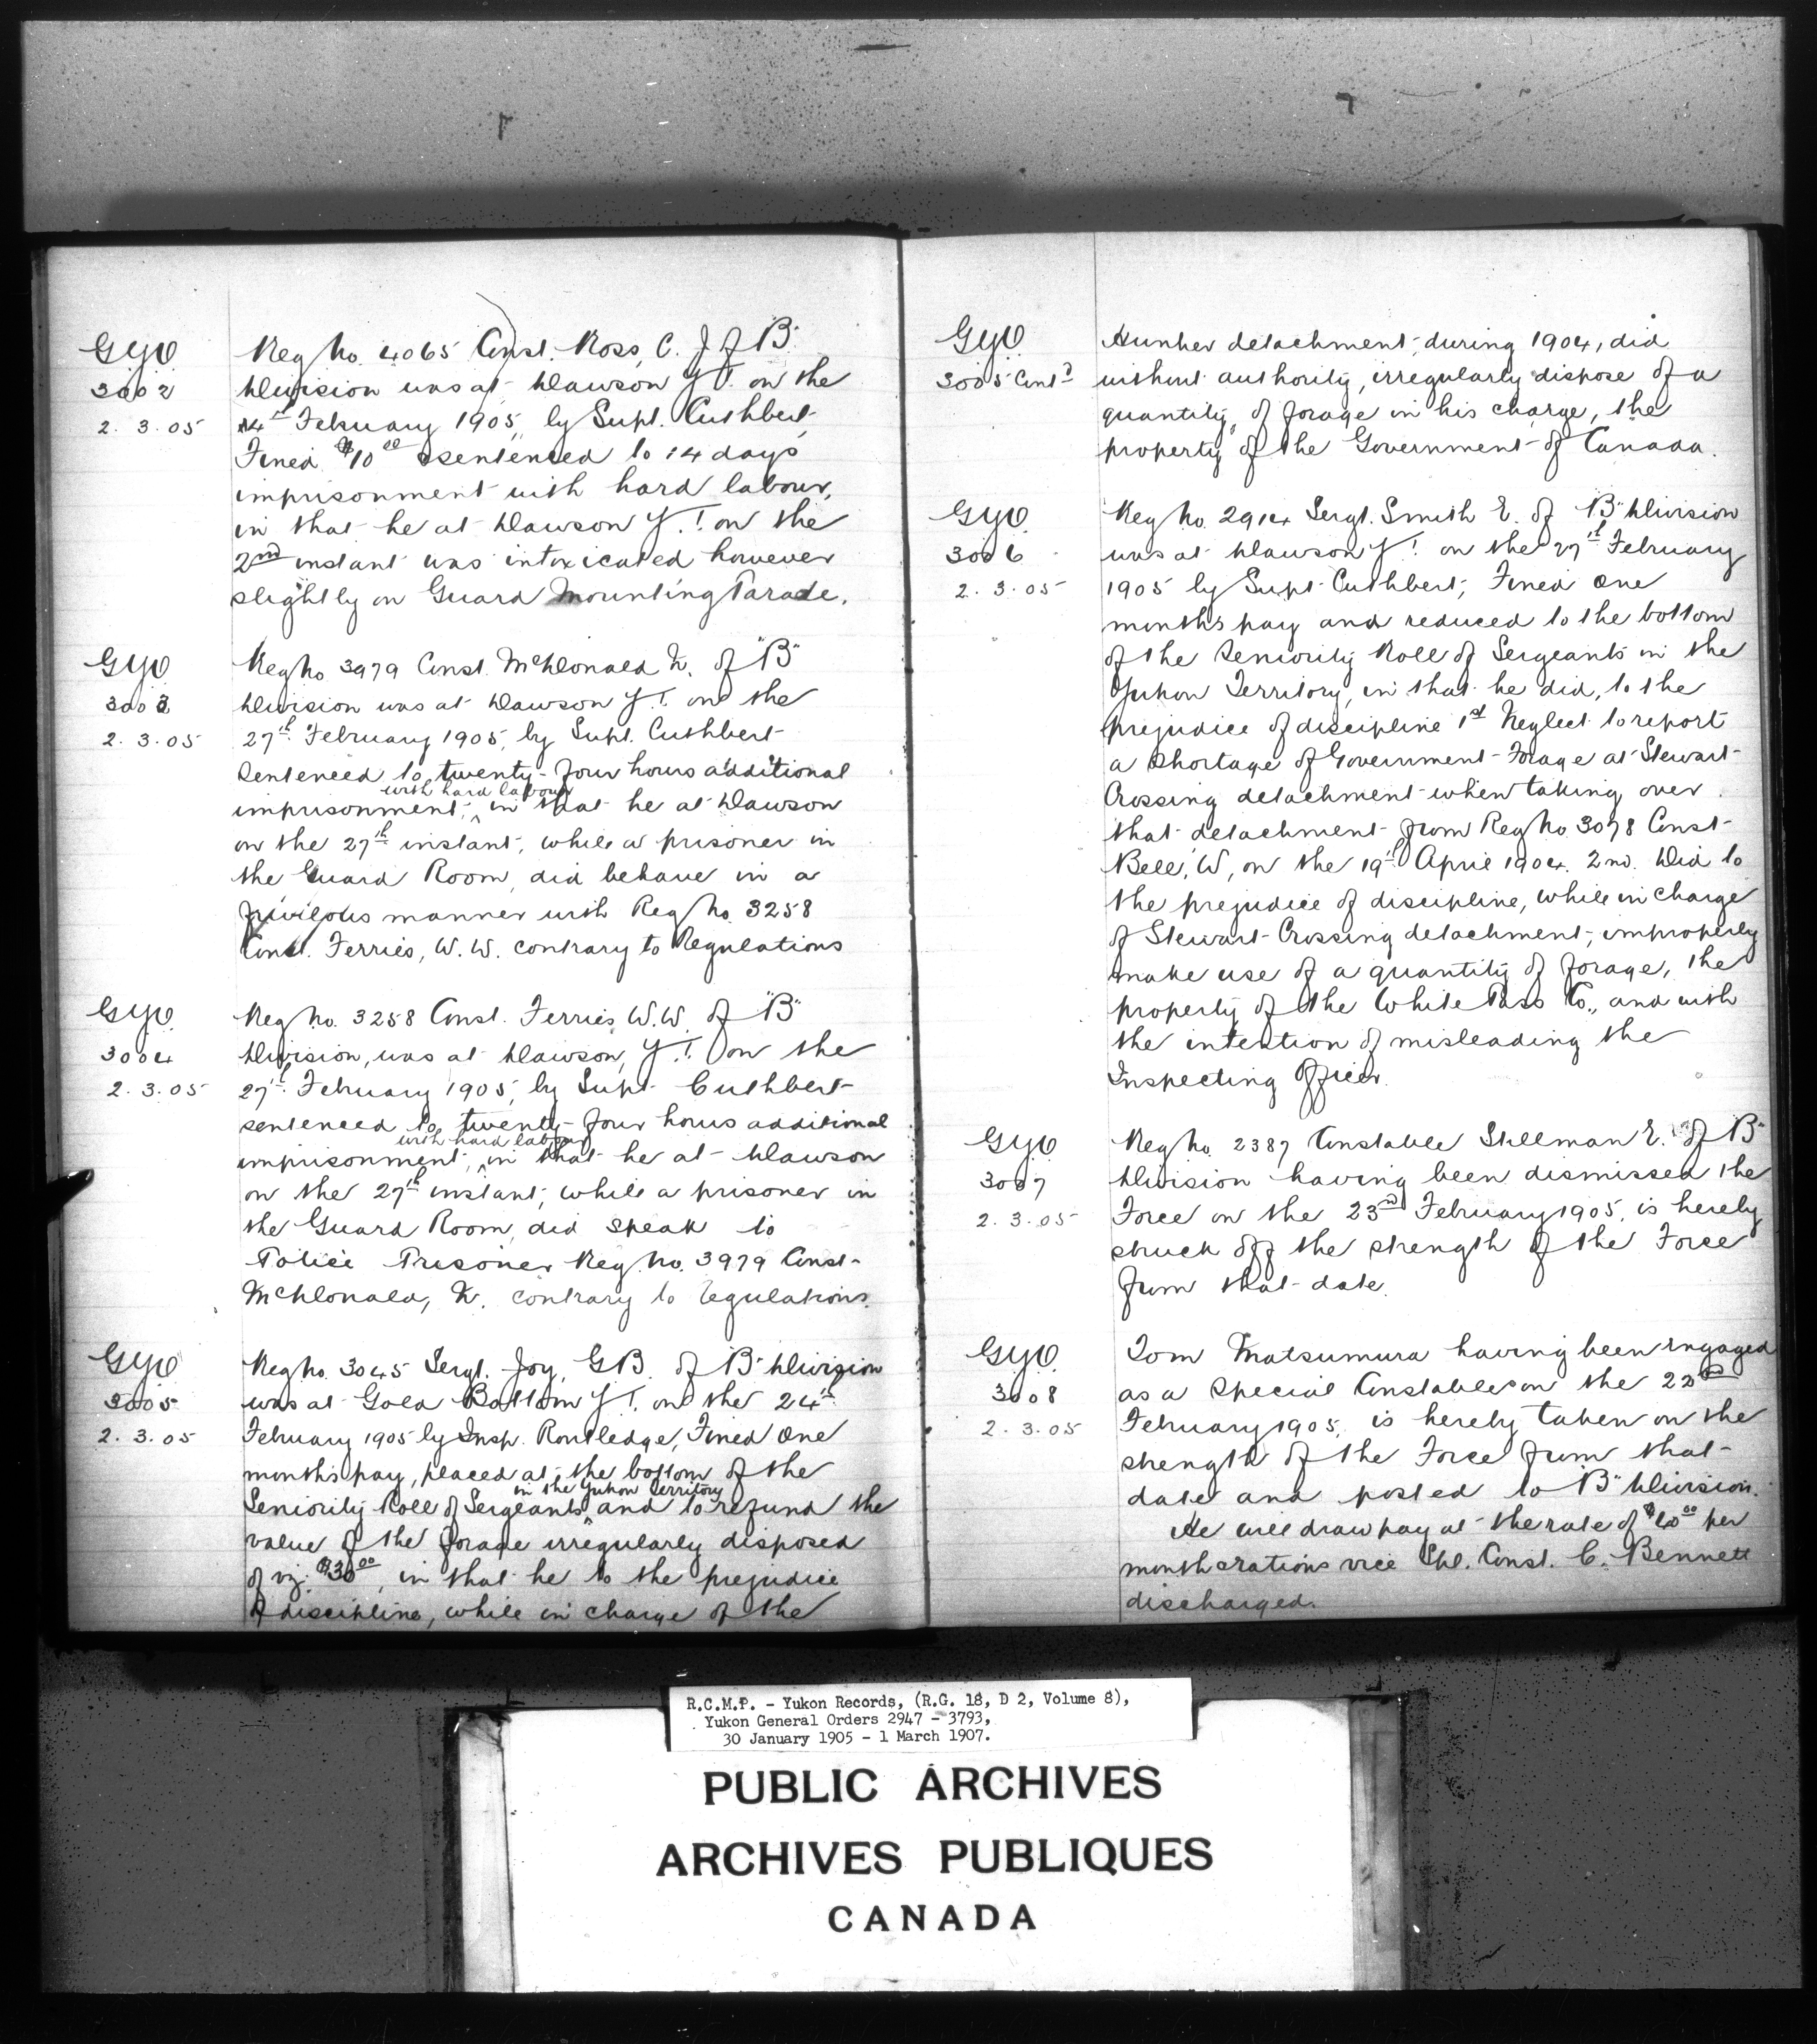 GYO
3002
2.3.05
Reg No. 4065 Const. Ross, C. J of "B"
Division was at Dawson Y.T. on the
4th February 1905, by Supt. Cuthbert,
Fined $10.00 & sentenced to 14 days
imprisonment with hard labour,
in that he at Dawson Y.T. on the
2nd instant was intoxicated however
slightly on Guard Mounting Parade.
GYO
3003
2.3.05
Reg No 3979 Const. McDonald K. of "B"
Division was at Dawson Y.T. on the
27th February 1905, by Supt. Cuthbert
Sentenced to twenty-four hours additional
with hard labour
imprisonment, ^ in that he at Dawson
on the 27th instant, while a prisoner in
the Guard Room, did behave in a
frivilous manner with Reg No. 3258
Const. Ferries, W.W. contrary to Regulations
GYO
3004
2.3.05
Reg No. 3258 Const. Ferries, W.W. of "B"
Division, was at Dawson, Y.T. on the
27th February 1905, by Supt. Cuthbert
sentenced to twenty-four hours additional
with hard labour
imprisonment, ^ in that he at Dawson
on the 27th instant, while a prisoner in
the Guard Room, did speak to
Police Prisoner Reg No. 3979 Const.
McDonald, K. contrary to regulations.
GYO
3005
2.3.05
Reg No. 3045 Sergt. Joy, G.B. of "B" Division
was at Gold Bottom Y.T. on the 24th
February 1905 by Insp. Routledge, Fined One
months pay, placed at the bottom of the
in the Yukon Territory
Seniority Roll of Sergeants ^ and to refund the
value of the forage irregularly disposed
of viz: $30.00, in that he to the prejudice
of discipline, while in charge of the
GYO
3005 Cont'd
Hunker detachment, during 1904, did
without authority, irregularly dispose of a
quantity of forage in his charge, the
property of the Government of Canada.
GYO
3006
2.3.05
Reg No. 2914 Sergt. Smith E. of "B" Division
was at Dawson Y.T. on the 27th February
1905 by Supt. Cuthbert, Fined One
months pay and reduced to the bottom
of the Seniority Roll of Sergeants in the
Yukon Territory, in that he did, to the
prejudice of discipline 1st Neglect to report
a shortage of Government Forage at Stewart
Crossing detachment when taking over
that detachment from Reg No. 3078 Const.
Bell, W, on the 19th April 1904. 2nd. Did to
the prejudice of discipline, while in charge
of Stewart Crossing detachment, improperly
make use of a quantity of forage, the
property of the White Pass Co., and with
the intention of misleading the
Inspecting Officer.
GYO
3007
2.3.05
Reg No. 2387 Constable Stillman E. of "B"
Division having been dismissed the
Force on the 23rd February 1905, is hereby
struck off the strength of the Force
from that date.
GYO
3008
2.3.05
Tom Matsumura having been engaged
as a Special Constable on the
February 1905, is hereby taken on the
strength of the Force from that
date and posted to "B" Division.
He will draw pay at the rate of per
month & rations vice Spl. Const. C. Bennett
discharged.
R.C.M.P. - Yukon Records, (R.G. 18, D 2, Volume 8),
Yukon General Orders 2947 - 3793,
30 January 1905 - 1 March 1907.
PUBLIC ARCHIVES
ARCHIVES PUBLIQUES
CANADA